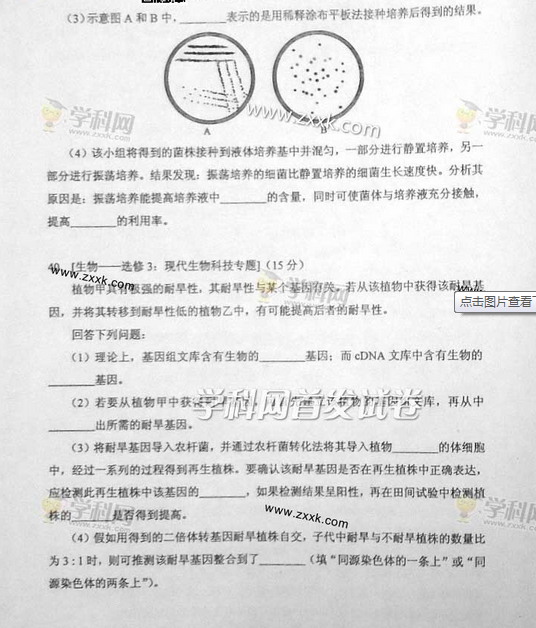 (3)示意图 A 和 B 中，________表示的是用稀释涂布平板法接种培养后得到的结果。
学科网
www.zxxk.com
学科网
www.zxxk.com
A
B
(4) 该小组将得到的菌株接种到液体培养基中并混匀，一部分进行静置培养，另一
部分进行振荡培养。结果发现：振荡培养的细菌比静置培养的细菌生长速度快。分析其
原因是：振荡培养能提高培养液中________的含量，同时可使菌体与培养液充分接触，
提高________的利用率。
40. [生物——选修 3：现代生物科技专题]（15 分）
www.zxxk.com
植物甲具有极强的耐旱性，其耐旱性与某个基因有关。若从该植物中获得该耐旱基
点击图片查看
因，并将其转移到耐旱性低的植物乙中，有可能提高后者的耐旱性。
回答下列问题：
(1) 理论上，基因组文库含有生物的________基因；而 cDNA 文库中含有生物的
________基因。
(2) 若要从植物甲中获 文库，再从中
学科网首发试卷
________出所需的耐旱基因。
(3) 将耐旱基因导入农杆菌，并通过农杆菌转化法将其导入植物________的体细胞
中，经过一系列的过程得到再生植株。要确认该耐旱基因是否在再生植株中正确表达，
应检测此再生植株中该基因的________，如果检测结果呈阳性，再在田间试验中检测植
株的________是否得到提高。
学科网
www.zxxk.com
学科网
www.zxxk.com
(4) 假如用得到的二倍体转基因耐旱植株自交，子代中耐旱与不耐旱植株的数量比
为 3 : 1 时，则可推测该耐旱基因整合到了________（填“同源染色体的一条上”或“同
源染色体的两条上”）。